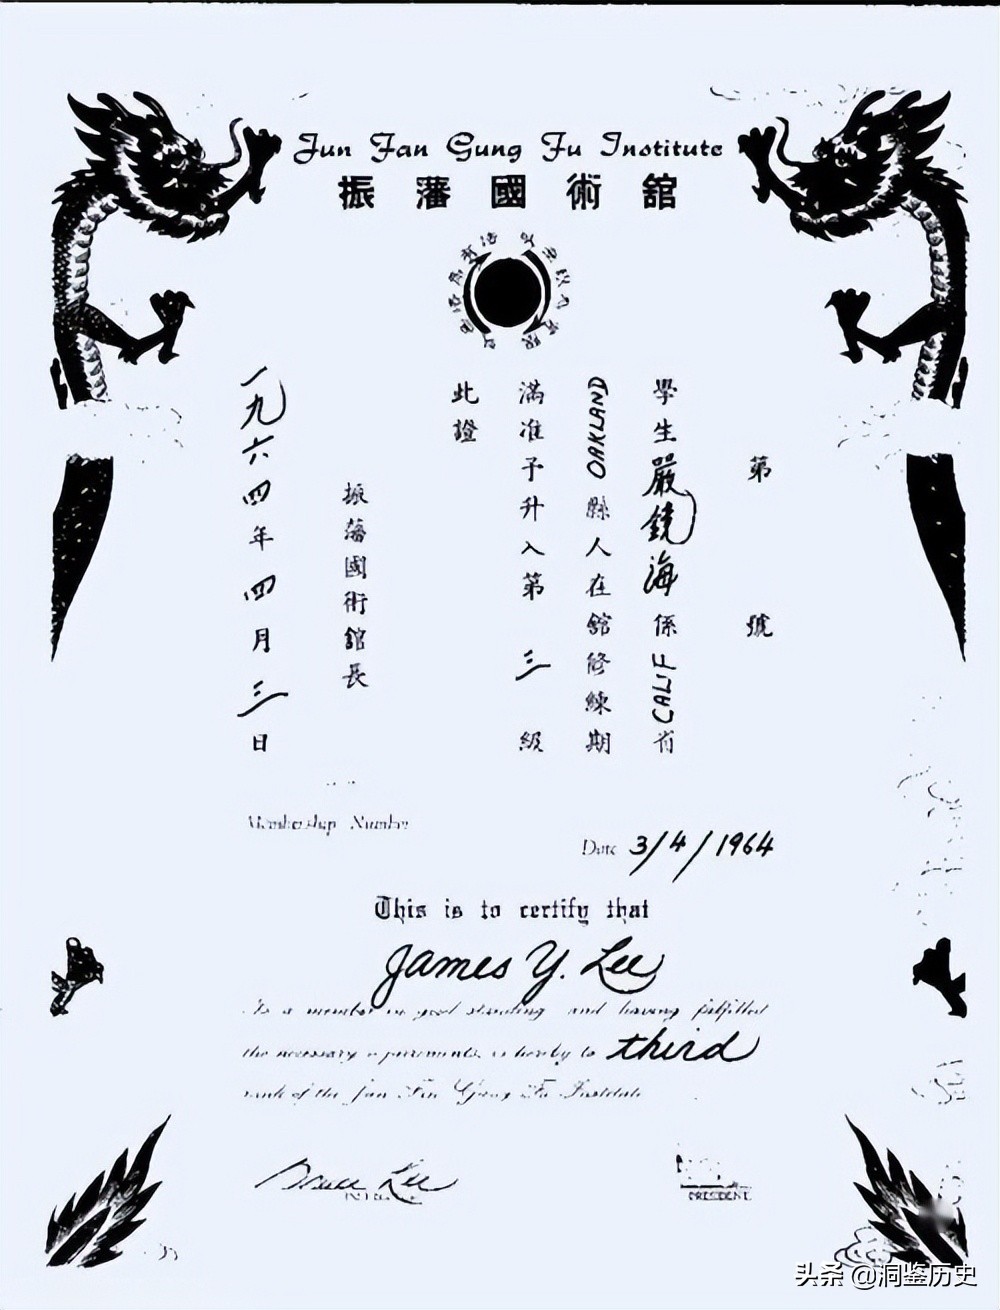 Jun Fan Gung Fu Institute
振藩國術館
以無限為有限
以無法為有法
第 號
學生嚴鏡海係CALIF省
OAKLAND縣人在館修練期
滿准予升入第三級
此證
振藩國術館長
一九六四年四月三日
Membership Number
Date 3/4/1964
This is to certify that
James Y. Lee
Is a member in good standing and having fulfilled
the necessary requirements, is hereby to third
rank of the Jun Fan Gung Fu Institute
Bruce Lee
PRESIDENT
头条 @洞鉴历史